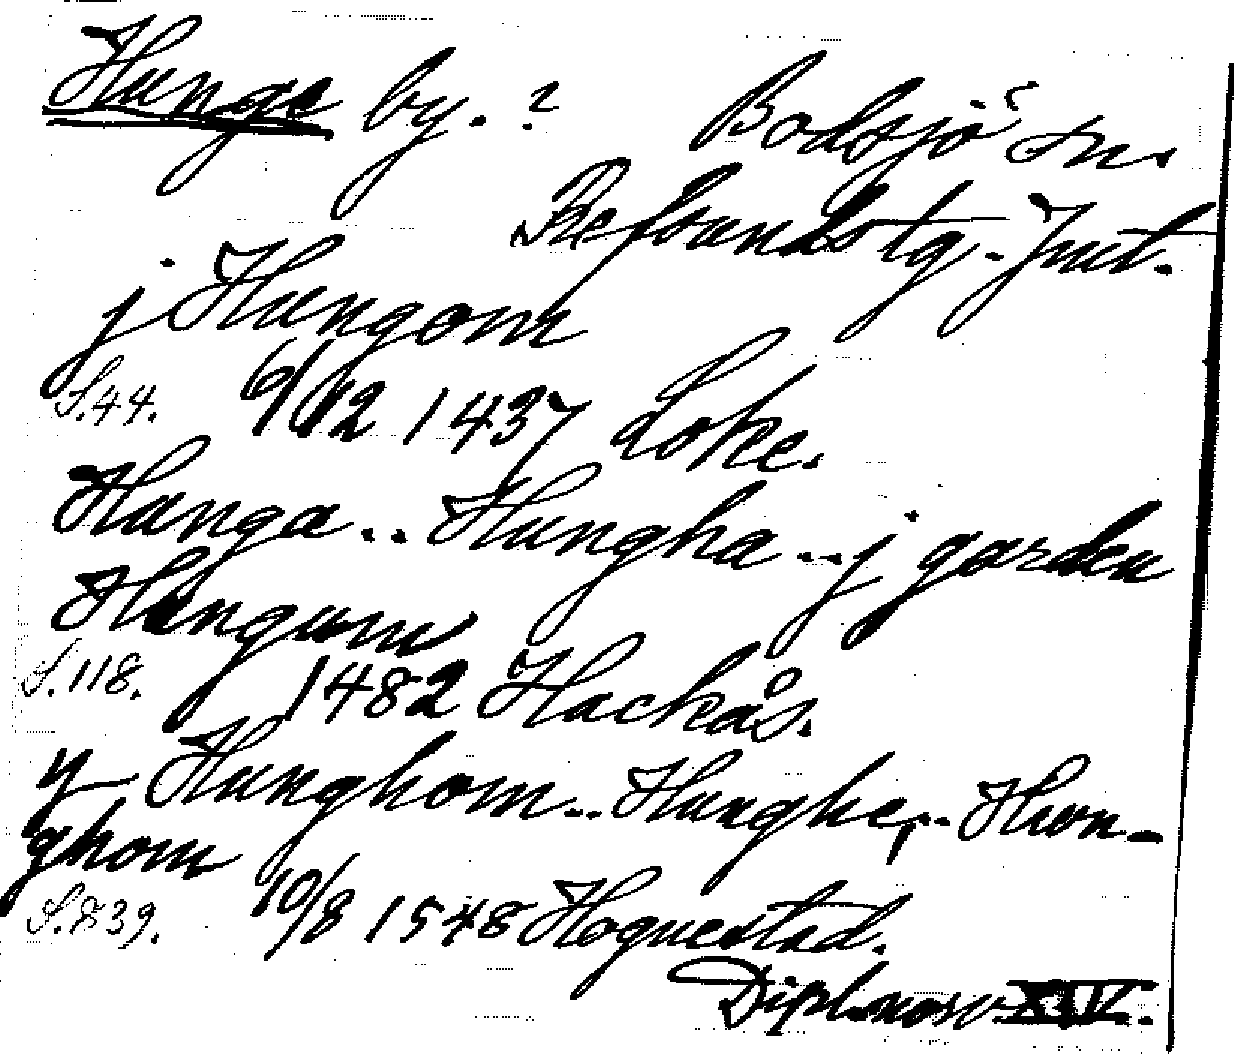 Hunge by. ? Bodsjö sn.
Refsundstg. Jmtl.
j Hungom
S. 44. 6/12 1437 Loke.
Hunga .. Hungha .. j garden
Hungum
S. 118. 1482 Hackås.
y Hunghom .. Hunghe, .. Hwn-
ghom
S. 839. 10/8 1548 Hognestad.
Diplnorv XIV.